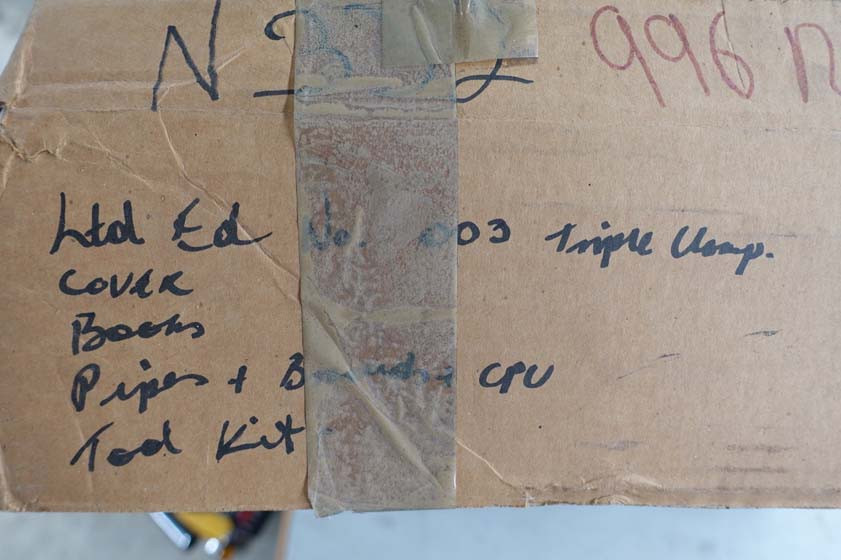 N 996 R
Ltd Ed No. 003 Triple Clamp.
COVER
Books
Pipes + CPU
Tool Kit